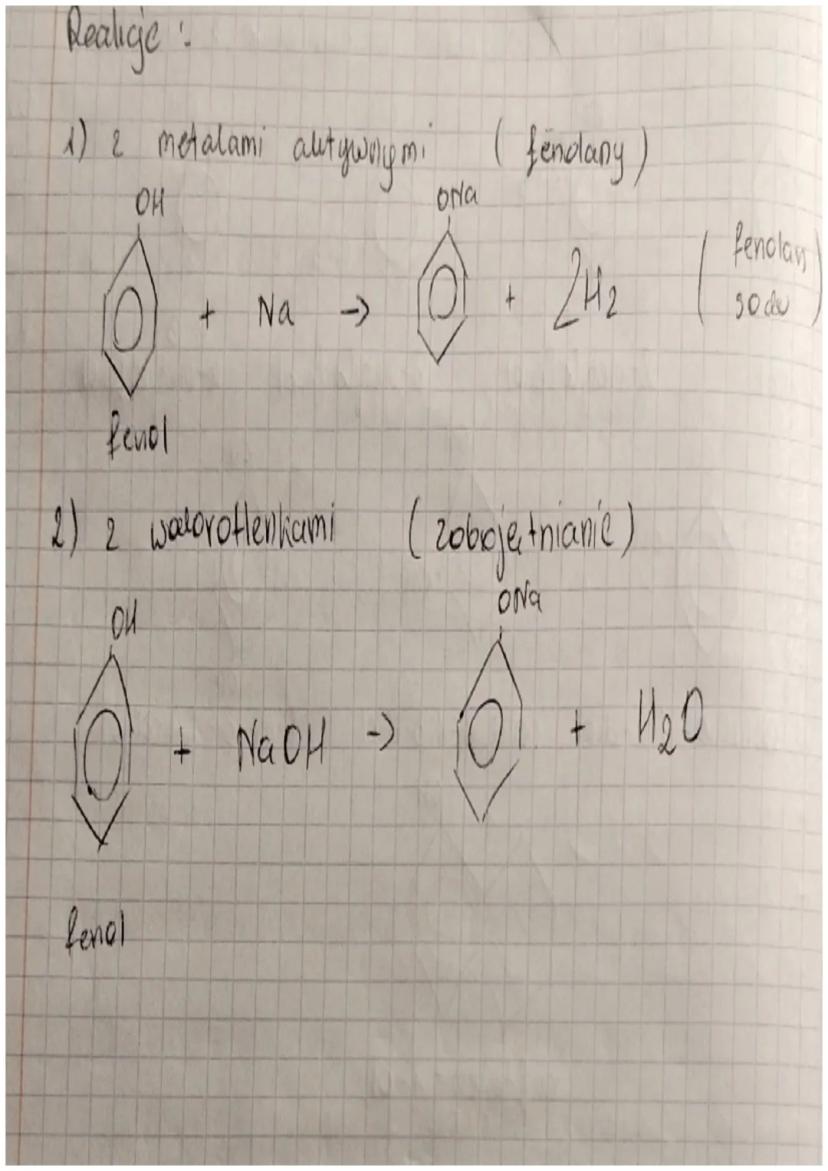 Reakcje :
1) z metalami aktywnymi ( fenolany )
OH
ONa
+ Na → + 2H2 ( fenolan
sodu )
fenol
2) z wodorotlenkami ( zobojętnianie )
OH
ONa
+ NaOH → + H2O
fenol